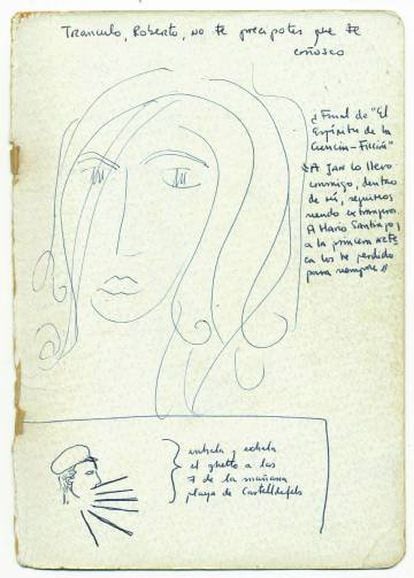 Tranculo, Roberto, no te precipites que te
conozco
¿Final de "El
Espíritu de la
Ciencia-Ficción"
A Jan lo llevo
conmigo, dentro
de mí, seguimos
siendo extranjeros.
A Mario Santiago y
a la princesa azteca
los he perdido
para siempre"
inhala y exhala
el ghetto a las
7 de la mañana
playa de Castelldefels